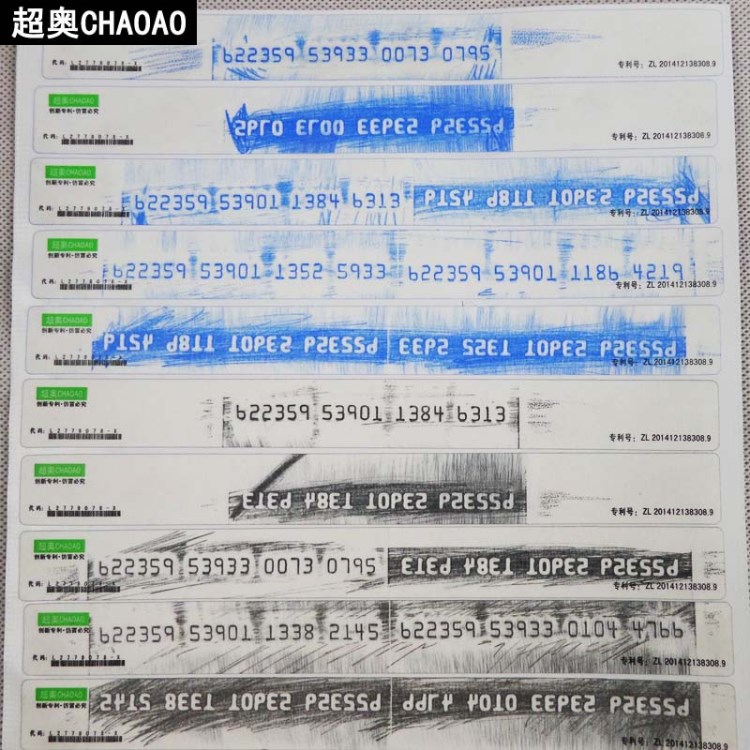 超奥CHAOAO
622359 53933 0073 0795
代码: 专利号: ZL 201412138308.9
超奥CHAOAO
创新专利·仿冒必究
622359 53933 0073 0795
代码: 专利号: ZL 201412138308.9
超奥CHAOAO
创新专利·仿冒必究
622359 53901 1384 6313 622359 53901 1186 4219
代码: 专利号: ZL 201412138308.9
超奥CHAOAO
创新专利·仿冒必究
622359 53901 1352 5933 622359 53901 1186 4219
代码: 专利号: ZL 201412138308.9
超奥CHAOAO
创新专利·仿冒必究
622359 53901 1186 4219 622359 53901 1352 5933
代码: 专利号: ZL 201412138308.9
超奥CHAOAO
创新专利·仿冒必究
622359 53901 1384 6313
代码: 专利号: ZL 201412138308.9
超奥CHAOAO
创新专利·仿冒必究
622359 53901 1384 6313
代码: 专利号: ZL 201412138308.9
超奥CHAOAO
创新专利·仿冒必究
622359 53933 0073 0795 622359 53901 1384 6313
代码: 专利号: ZL 201412138308.9
超奥CHAOAO
创新专利·仿冒必究
622359 53901 1338 2145 622359 53933 0104 4766
代码: 专利号: ZL 201412138308.9
超奥CHAOAO
创新专利·仿冒必究
622359 53901 1338 2145 622359 53933 0104 4766
代码: 专利号: ZL 201412138308.9